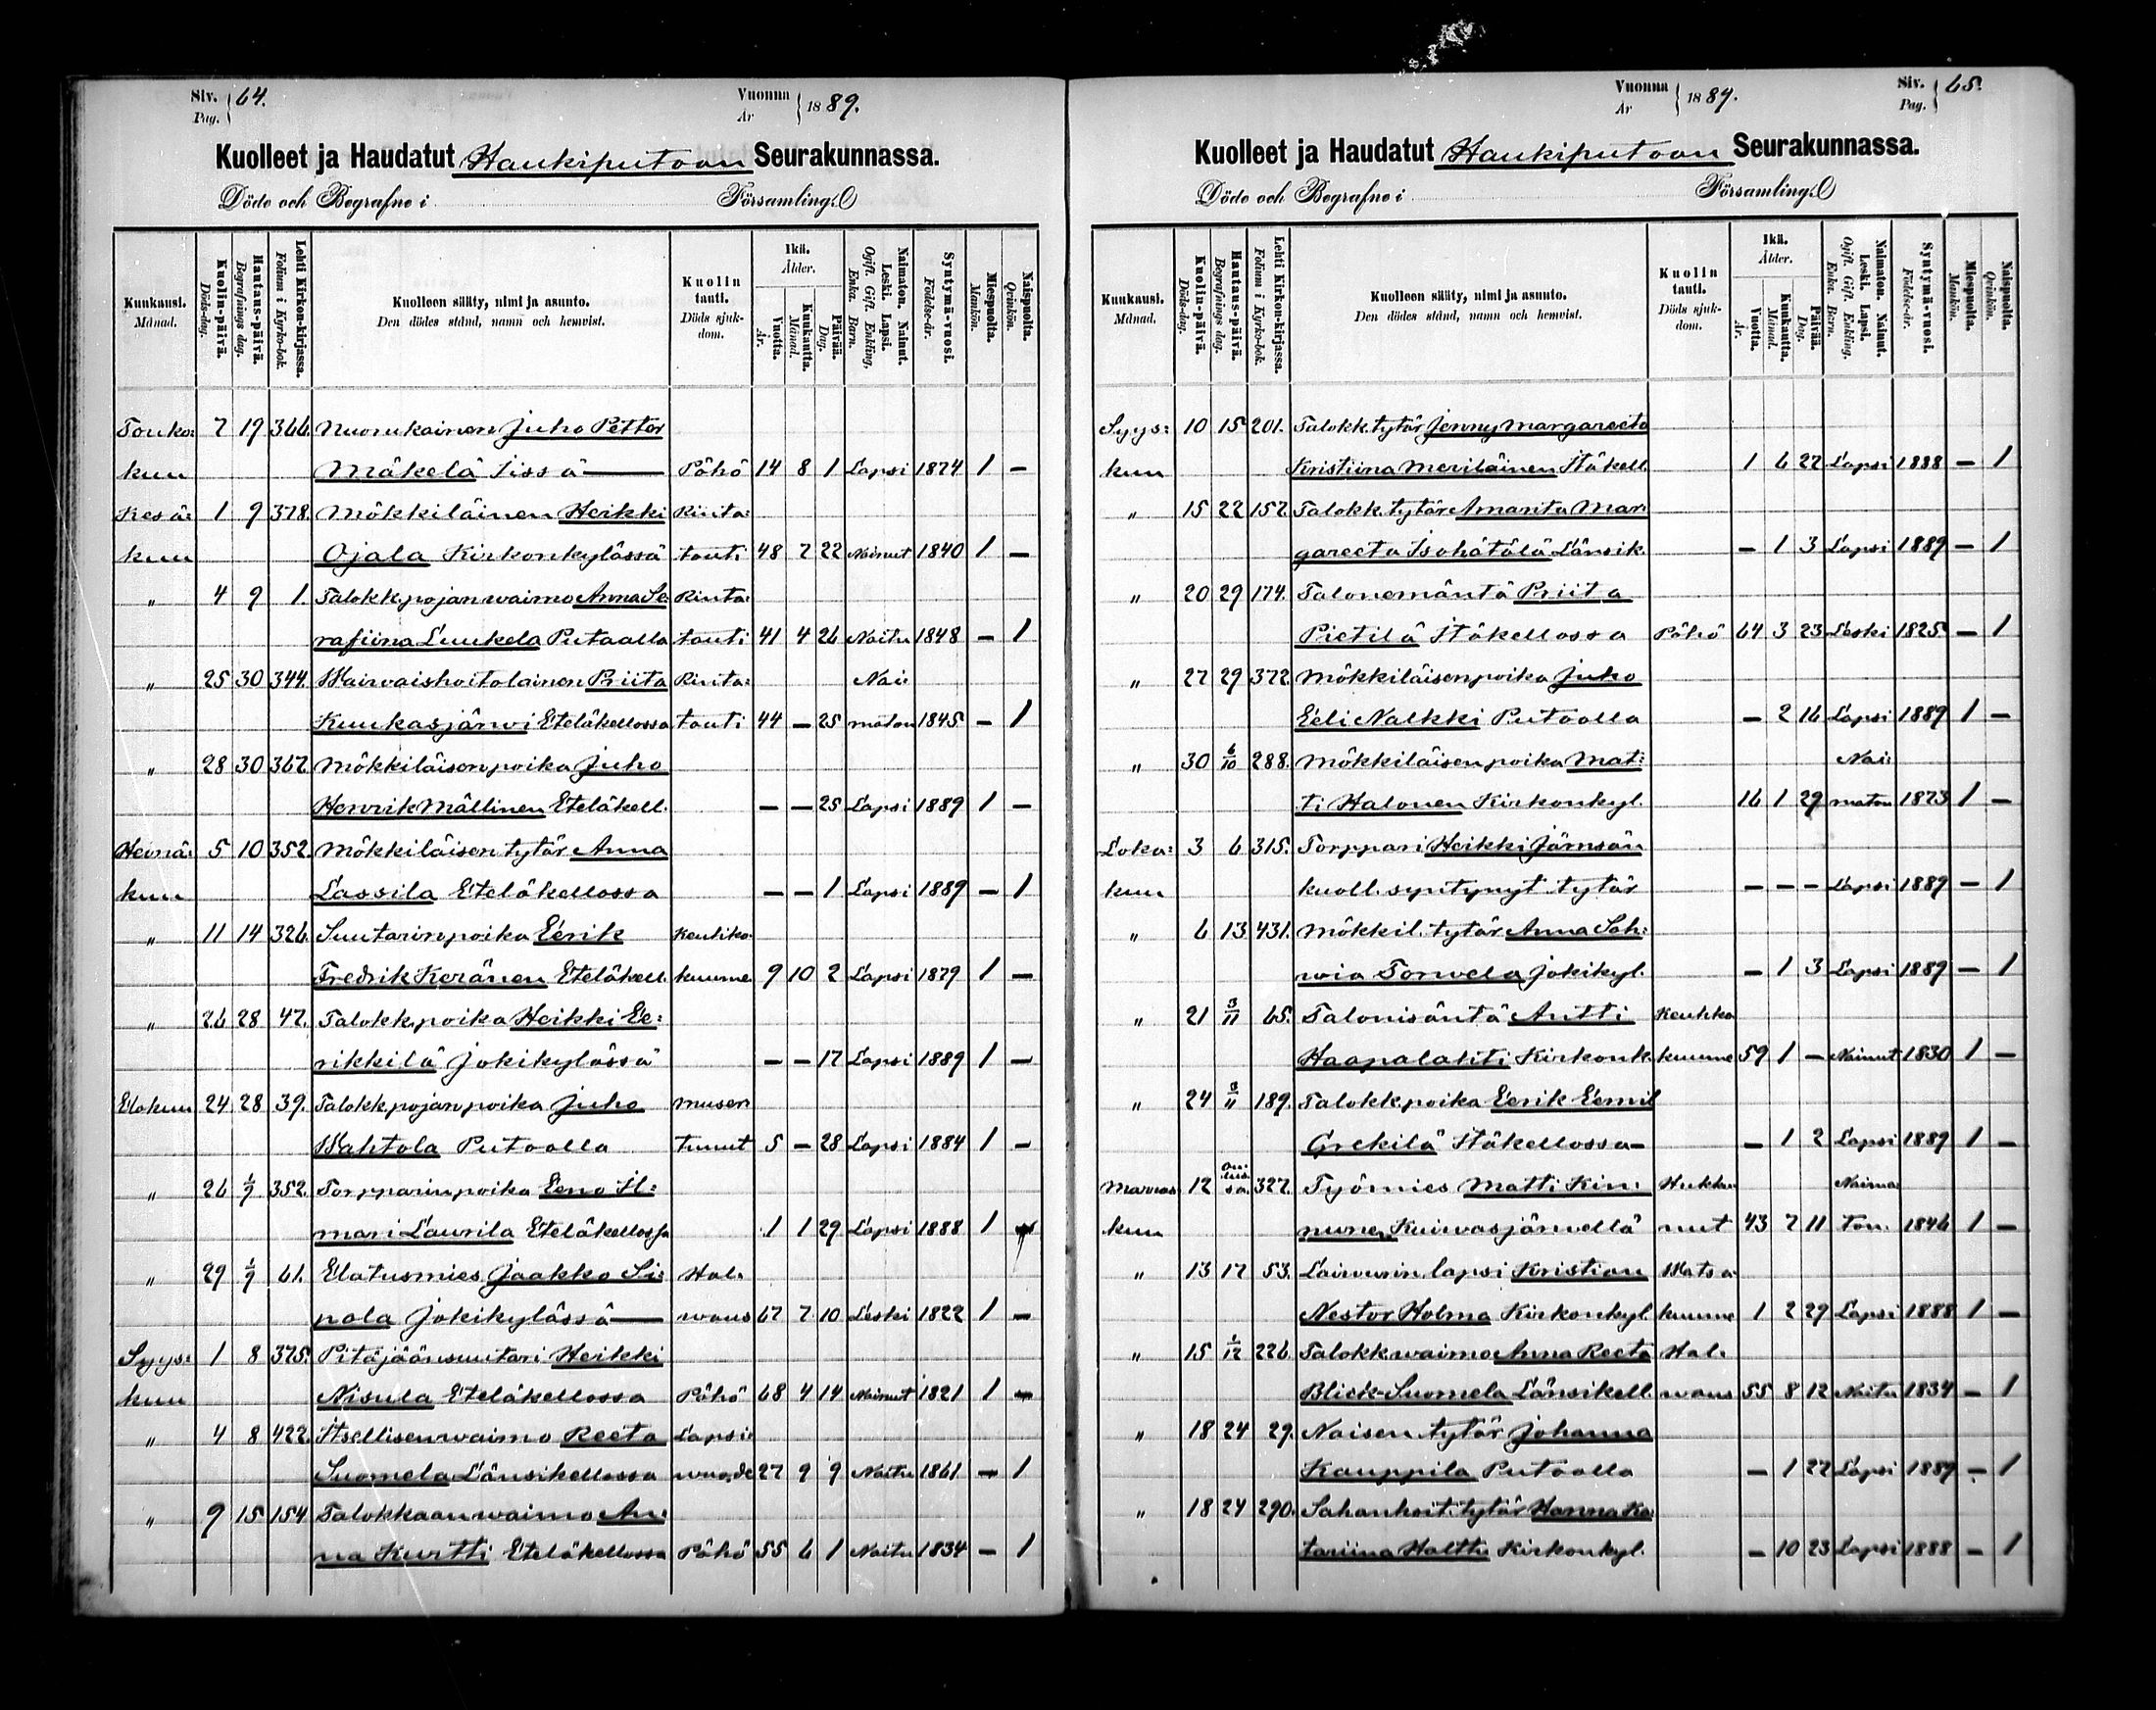 Siv. Pag. 64. Vuonna År 1889.
Kuolleet ja Haudatut Haukiputaan Seurakunnassa.
Döde och Begrafne i Församling.
Kuukausi. Månad. Kuolin-päivä. Döds-dag. Hautaus-päivä. Begrafnings dag. Lehti Kirkon-kirjassa. Folium i Kyrko-bok. Kuolleen sääty, nimi ja asunto. Den dödes stånd, namn och hemvist. Kuolin tauti. Döds sjukdom. Ikä. Ålder. Vuotta. År. Kuukautta. Månad. Päivää. Dag. Naimaton. Nainut. Leski. Lapsi. Ogift. Gift. Enkling. Enka. Barn. Syntymä-vuosi. Födelse-år. Miespuolta. Mankön. Naispuolta. Qvinkön.
Touko: 7 19 366. Nuorukainen Juho Petter
kuu Mäkelä Iissä — Pöhö 14 8 1 Lapsi 1874 1 —
Kesä: 1 9 378. Mökkiläinen Heikki Rinta:
kuu Ojala Kirkonkylässä tauti 48 7 22 Nainut 1840 1 —
" 4 9 1. Talokk.pojanwaimo Anna Se Rinta:
rafiina Luukela Putaalla tauti 41 4 26 Naitu 1848 — 1
" 25 30 344. Waiwaishoitolainen Priita Rinta: Nai:
Kuukasjärwi Eteläkellossa tauti 44 — 25 maton 1845 — 1
" 28 30 367. Mökkiläisenpoika Juho
Henrik Mällinen Eteläkell. — — 25 Lapsi 1889 1 —
Heinä: 5 10 352. Mökkiläisen tytär Anna
kuu Lassila Eteläkellossa — — 1 Lapsi 1889 — 1
" 11 14 326. Suutarinpoika Eerik Keuhko
Fredrik Keränen Eteläkell. kuume 9 10 2 Lapsi 1879 1 —
" 26 28 47. Talokk.poika Heikki Ee:
rikkilä Jokikylässä — — 17 Lapsi 1889 1 —
Elokuu 24 28 39. Talokk.pojanpoika Juho musert
Wahtola Putaalla tunut 5 — 28 Lapsi 1884 1 —
" 26 1/9 352. Torpparinpoika Eeno Il:
mari Laurila Eteläkellossa 1 1 29 Lapsi 1888 1
" 29 1/9 61. Elatusmies Jaakko Si: Hal:
pola Jokikylässä — waus 67 7 10 Leski 1822 1 —
Syys: 1 8 375. Pitäjäänsuutari Heikki
kuu Nisula Eteläkellossa Pöhö 68 4 14 Nainut 1821 1 —
" 4 8 422. Itsellisenwaimo Reeta Lapsi:
Suomela Länsikellossa wuode 27 9 9 Naitu 1861 — 1
" 9 15 154 Talokkaanwaimo An:
na Kurtti Eteläkellossa Pöhö 55 6 1 Naitu 1834 — 1
Vuonna År 1889. Siv. Pag. 65.
Kuolleet ja Haudatut Haukiputaan Seurakunnassa.
Döde och Begrafne i Församling.
Kuukausi. Månad. Kuolin-päivä. Döds-dag. Hautaus-päivä. Begrafnings dag. Lehti Kirkon-kirjassa. Folium i Kyrko-bok. Kuolleen sääty, nimi ja asunto. Den dödes stånd, namn och hemvist. Kuolin tauti. Döds sjukdom. Ikä. Ålder. Vuotta. År. Kuukautta. Månad. Päivää. Dag. Naimaton. Nainut. Leski. Lapsi. Ogift. Gift. Enkling. Enka. Barn. Syntymä-vuosi. Födelse-år. Miespuolta. Mankön. Naispuolta. Qvinkön.
Syys: 10 15 201. Talokk.tytär Jenny Margareeta
kuu Kristiina Meriläinen Itäkell. 1 6 22 Lapsi 1888 — 1
" 15 22 157. Talokk.tytär Amanta Mar:
gareeta Isohätälä Länsik. — 1 3 Lapsi 1889 — 1
" 20 29 174. Talonemäntä Priita
Pietilä Itäkellossa Pöhö 64 3 23 Leski 1825 — 1
" 27 29 372. Mökkiläisenpoika Juho
Eeli Nalkki Putaalla — 2 16 Lapsi 1889 1 —
" 30 6/10 288. Mökkiläisen poika Mat: Nai:
ti Halonen Kirkonkyl. 16 1 29 maton 1873 1 —
Loka: 3 6 315. Torppari Heikki Jämsän
kuu kuoll. syntynyt tytär — — — Lapsi 1889 — 1
" 6 13 431. Mökkil. tytär Anna Sah:
wia Torwela Jokikyl. — 1 3 Lapsi 1889 — 1
" 21 3/11 65. Talonisäntä Antti Keuhko
Haapalahti Kirkonk. kuume 59 1 — Nainut 1830 1 —
" 24 3/11 189. Talokk.poika Eerik Eemil
Grekilä Itäkellossa — — 1 2 Lapsi 1889 1 —
Marras 12 327. Työmies Matti Kin: Hukku Naima
kuu nunen Kuiwasjärwellä nut 43 7 11 ton. 1846 1 —
" 13 17 53. Laiwurin lapsi Kristian Watsa
Nestor Holma Kirkonkyl. kuume 1 2 29 Lapsi 1888 1 —
" 15 1/12 226. Talokk.waimo Anna Reeta Hal:
Blick-Suomela Länsikell. waus 55 8 12 Naitu 1834 — 1
" 18 24 29. Naisen tytär Johanna
Kauppila Putaalla — 1 22 Lapsi 1889 — 1
" 18 24 290. Sahanhoit. tytär Hanna Ka:
tariina Holttu Kirkonkyl. — 10 23 Lapsi 1888 — 1